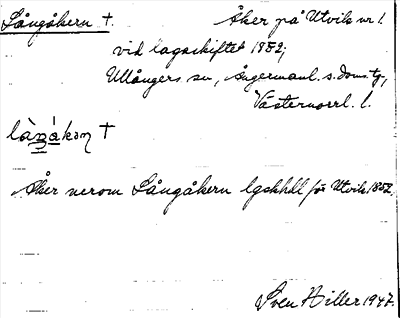 Långåkern †. Åker på Utvik nr 1.
vid lagaskiftet 1852;
Ullångers sn, Ångermanl. s. doms tg,
Västernorrl. l.
làŋákəɳ †
Åker nerom Långåkern lgskhdl för Utvik 1852.
Sven Hiller 1947.